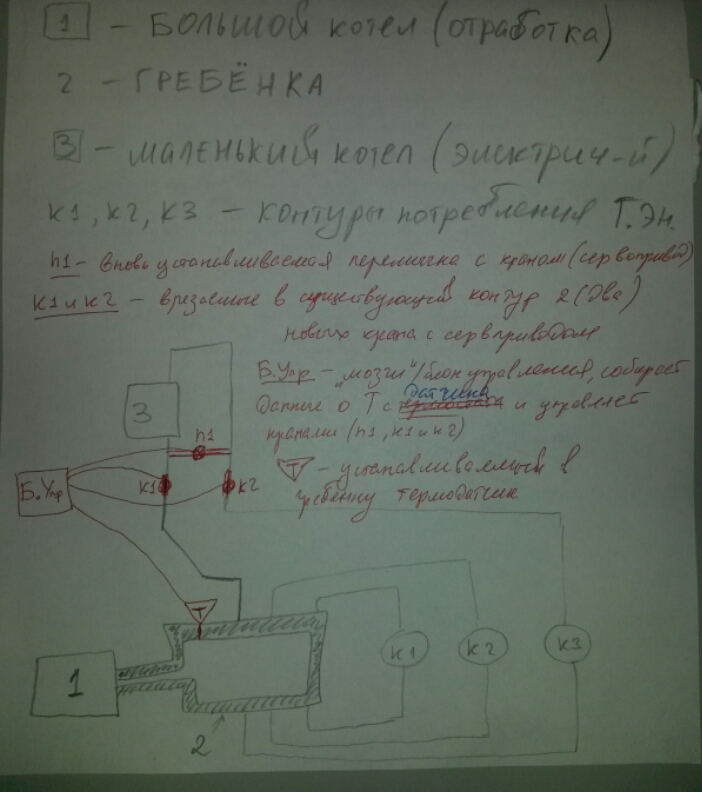 1 - БОЛЬШОЙ котел (отработка)
2 - ГРЕБЁНКА
3 - МАЛЕНЬКИЙ котел (электрич-й)
К1, К2, К3 - контуры потребления Т.Эн.
П1 - вновь устанавливаемая перемычка с краном (сервопривод)
К1 и К2 - врезаемые в существующий контур 2 (два)
новых крана с сервприводом
Б.Упр - "мозги"/блок управления, собирает
данные о Т с датчика и управляет
кранами (П1, К1 и К2)
Т - устанавливаемый в
гребёнку термодатчик
3
П1
Б.Упр
К1
К2
Т
1
К1
К2
К3
2